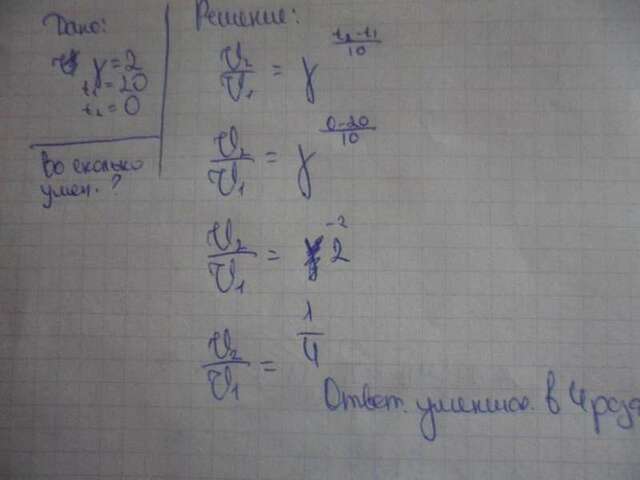 Дано:
γ = 2
t₁ = 20
t₂ = 0
Во сколько
умен. ?
Решение:
V₂/V₁ = γ^((t₂-t₁)/10)
V₂/V₁ = γ^((0-20)/10)
V₂/V₁ = 2^(-2)
V₂/V₁ = 1/4
Ответ. в 4 раза